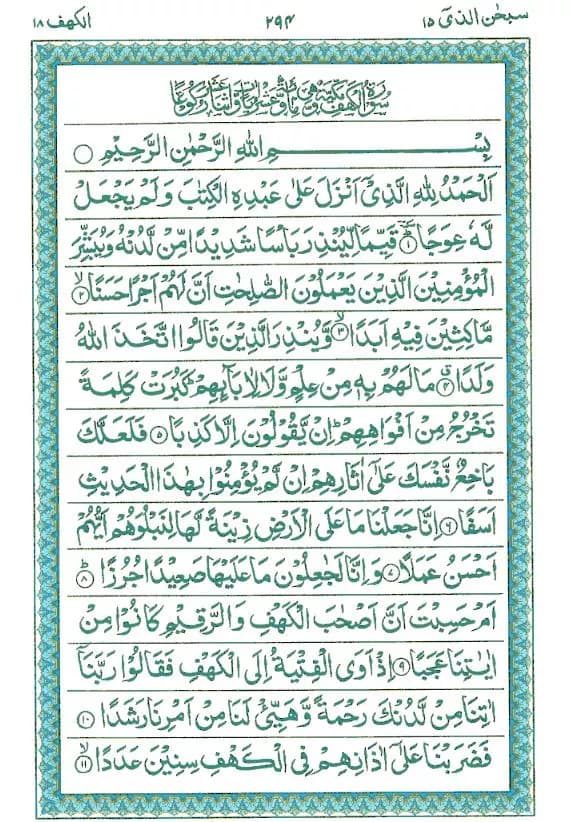 سبحٰن الذیٓ ١٥
٢٩٤
الکهف ١٨
سُوْرَةُ الْكَهْفِ مَكِّيَّةٌ وَّهِيَ مِائَةٌ وَّعَشْرُ اٰيَاتٍ وَّاثْنَا عَشَرَ رُكُوْعًا
بِسْمِ اللّٰهِ الرَّحْمٰنِ الرَّحِيْمِ
اَلْحَمْدُ لِلّٰهِ الَّذِيْٓ اَنْزَلَ عَلٰى عَبْدِهِ الْكِتٰبَ وَلَمْ يَجْعَلْ
لَّهٗ عِوَجًا ١ قَيِّمًا لِّيُنْذِرَ بَاْسًا شَدِيْدًا مِّنْ لَّدُنْهُ وَيُبَشِّرَ
الْمُؤْمِنِيْنَ الَّذِيْنَ يَعْمَلُوْنَ الصّٰلِحٰتِ اَنَّ لَهُمْ اَجْرًا حَسَنًا ٢
مَّاكِثِيْنَ فِيْهِ اَبَدًا ٣ وَّيُنْذِرَ الَّذِيْنَ قَالُوا اتَّخَذَ اللّٰهُ
وَلَدًا ٤ مَا لَهُمْ بِهٖ مِنْ عِلْمٍ وَّلَا لِاٰبَآئِهِمْ كَبُرَتْ كَلِمَةً
تَخْرُجُ مِنْ اَفْوَاهِهِمْ اِنْ يَّقُوْلُوْنَ اِلَّا كَذِبًا ٥ فَلَعَلَّكَ
بَاخِعٌ نَّفْسَكَ عَلٰٓى اٰثَارِهِمْ اِنْ لَّمْ يُؤْمِنُوْا بِهٰذَا الْحَدِيْثِ
اَسَفًا ٦ اِنَّا جَعَلْنَا مَا عَلَى الْاَرْضِ زِيْنَةً لَّهَا لِنَبْلُوَهُمْ اَيُّهُمْ
اَحْسَنُ عَمَلًا ٧ وَاِنَّا لَجٰعِلُوْنَ مَا عَلَيْهَا صَعِيْدًا جُرُزًا ٨
اَمْ حَسِبْتَ اَنَّ اَصْحٰبَ الْكَهْفِ وَالرَّقِيْمِ كَانُوْا مِنْ
اٰيٰتِنَا عَجَبًا ٩ اِذْ اَوَى الْفِتْيَةُ اِلَى الْكَهْفِ فَقَالُوْا رَبَّنَآ
اٰتِنَا مِنْ لَّدُنْكَ رَحْمَةً وَّهَيِّئْ لَنَا مِنْ اَمْرِنَا رَشَدًا ١٠
فَضَرَبْنَا عَلٰٓى اٰذَانِهِمْ فِي الْكَهْفِ سِنِيْنَ عَدَدًا ١١